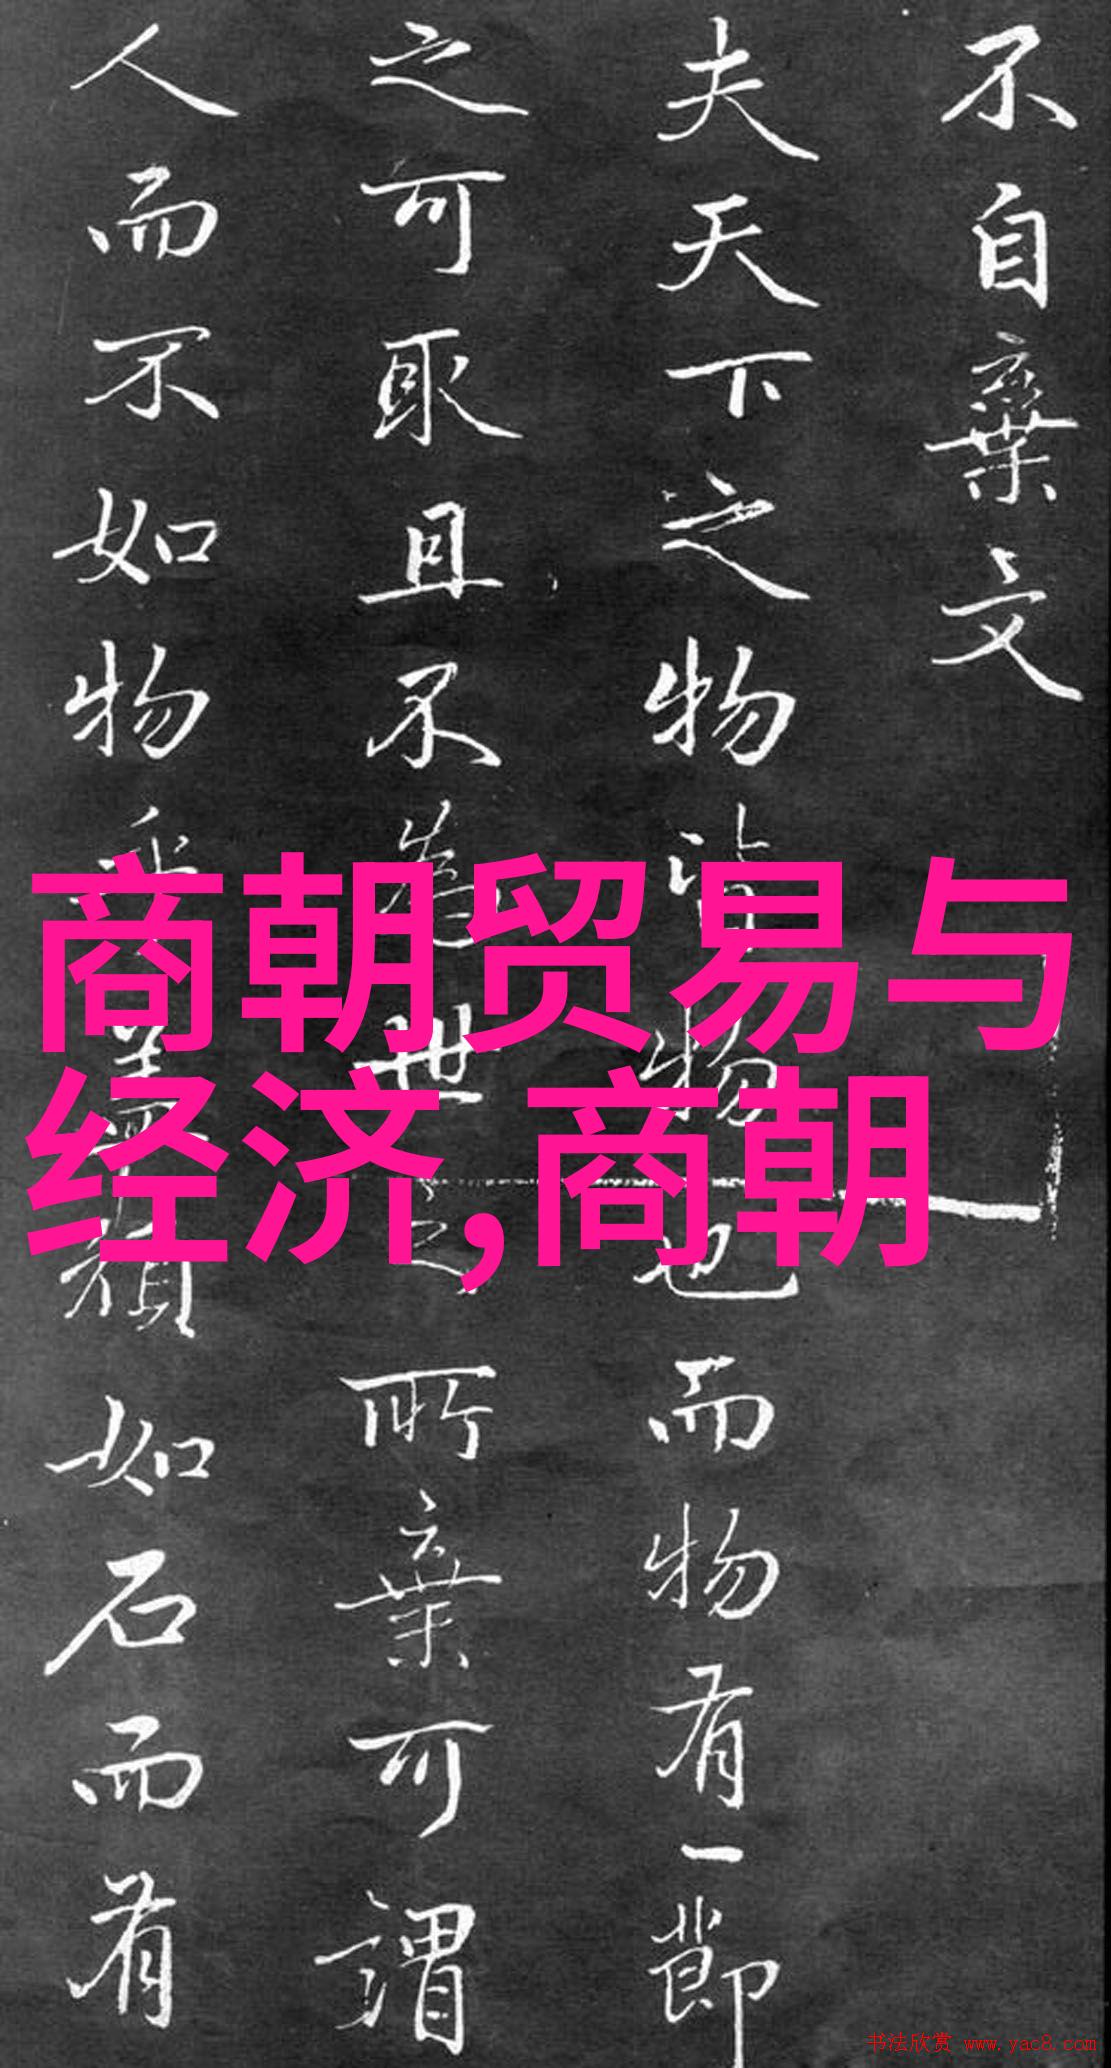 不自棄文
夫天下之物皆物也而物有一節
之可取且不為世之所棄可謂
人而不如物乎蓋頑如石而有
商朝贸易与
经济,商朝
书法欣赏 www.yac8.com